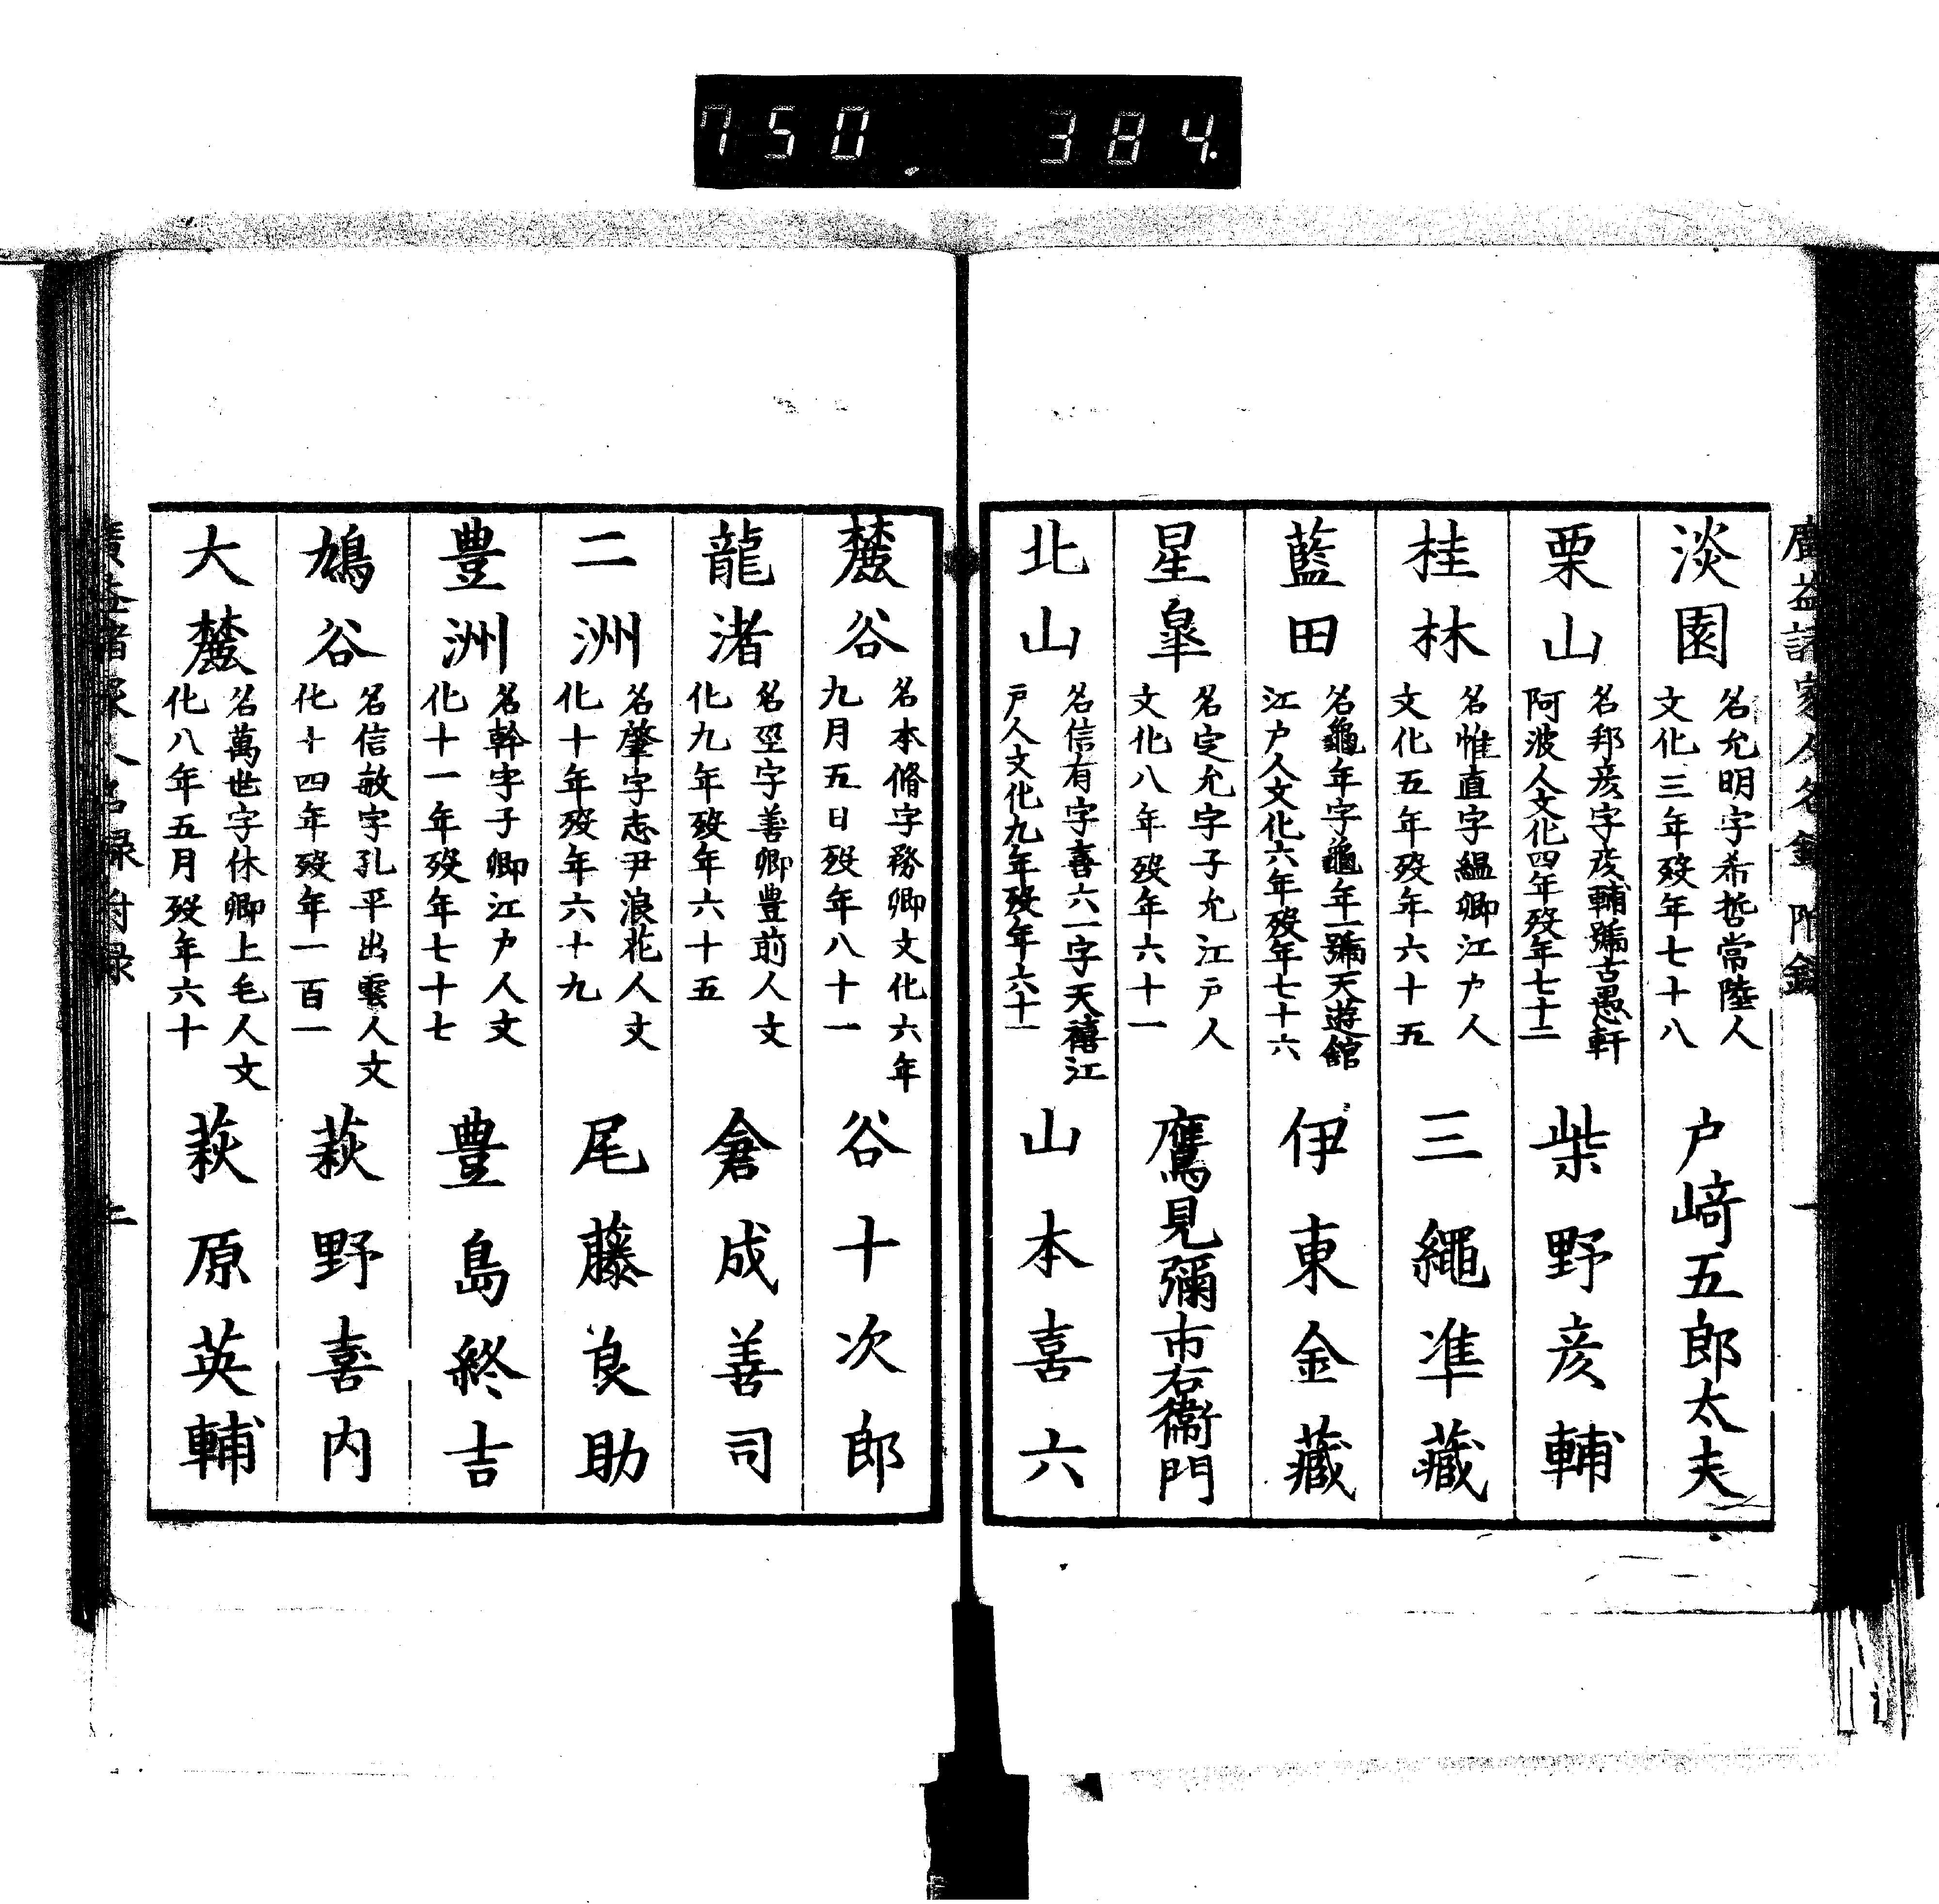 750 384.
廣益諸家人名録附録 一
淡園 名允明字希哲常陸人文化三年歿年七十八 戸﨑五郎太夫
栗山 名邦彦字彦輔號古愚軒阿波人文化四年歿年七十二 柴野彦輔
桂林 名惟直字緼卿江戸人文化五年歿年六十五 三繩準藏
藍田 名龜年字龜年一號天遊館江戸人文化六年歿年七十六 伊東金藏
星皐 名定允字子允江戸人文化八年歿年六十一 鷹見彌市右衞門
北山 名信有字喜六一字天禧江戸人文化九年歿年六十一 山本喜六
麓谷 名本脩字務卿文化六年九月五日歿年八十一 谷十次郎
龍渚 名坙字善卿豊前人文化九年歿年六十五 倉成善司
二洲 名肇字志尹浪花人文化十年歿年六十九 尾藤良助
豊洲 名幹字子卿江戸人文化十一年歿年七十七 豊島終吉
鳩谷 名信敏字孔平出雲人文化十四年歿年一百一 萩野喜内
大麓 名萬世字休卿上毛人文化八年五月歿年六十 萩原英輔
廣益諸家人名録附録 二